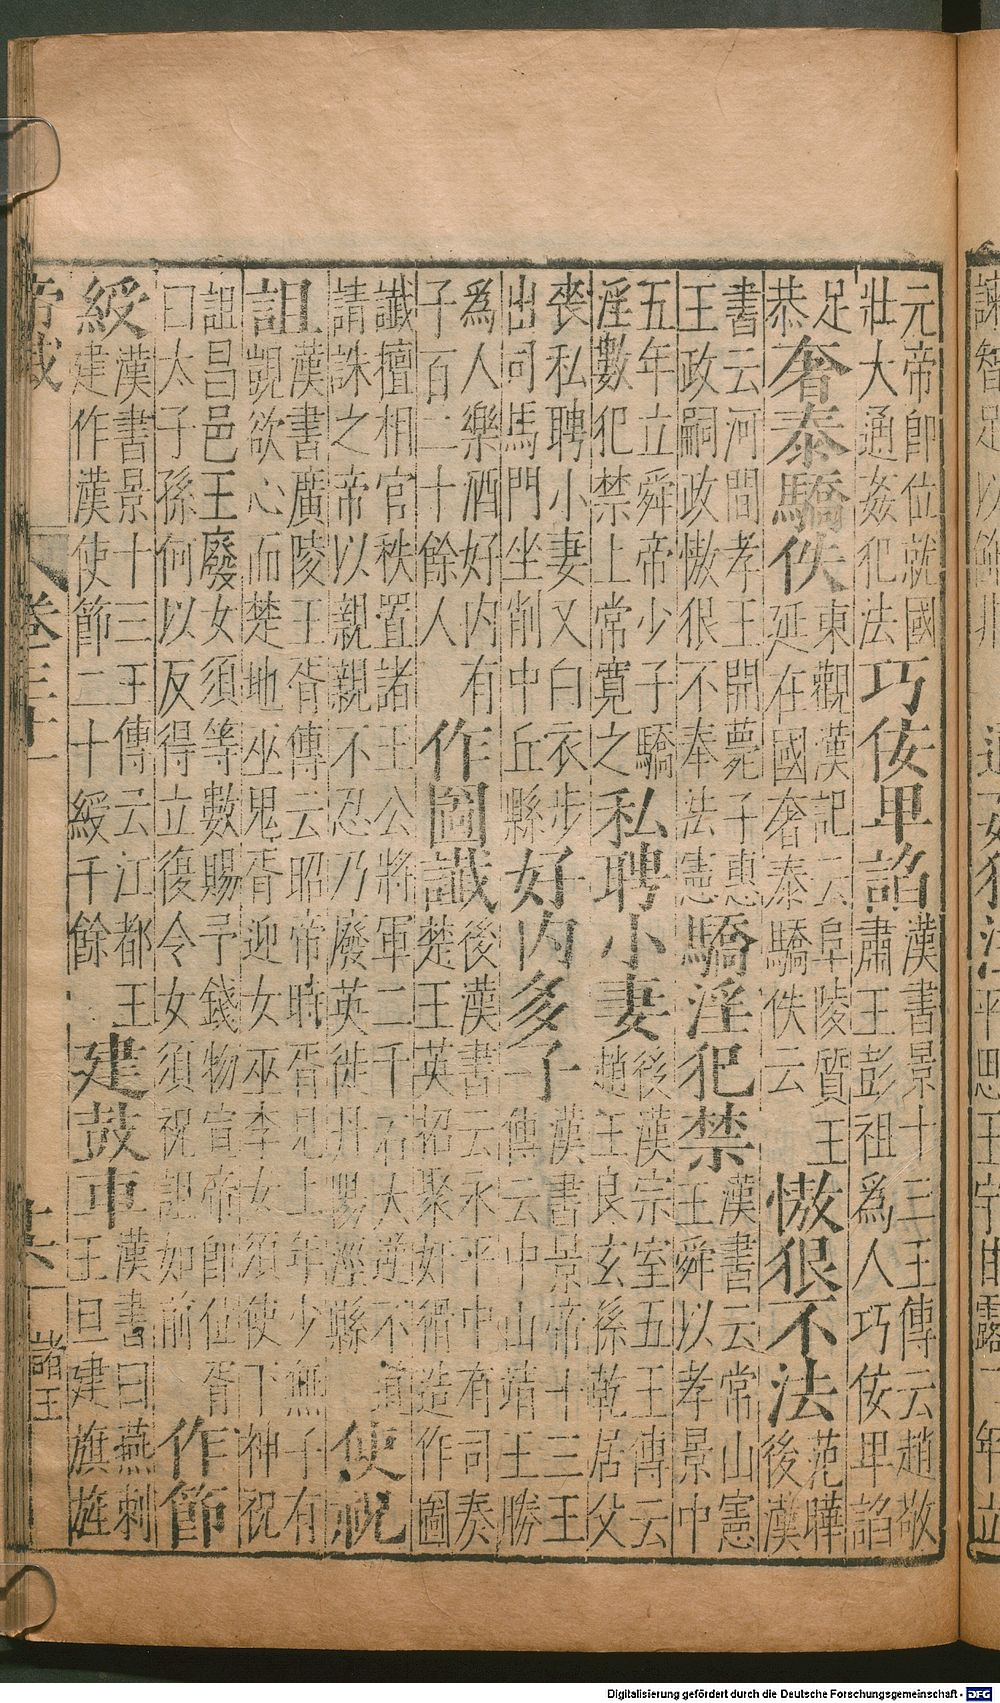 元帝即位就國
壯大通姦犯法
巧佞卑諂
漢書景十三王傳云趙敬
肅王彭祖爲人巧佞卑諂
足
恭
奢泰驕佚
東觀漢記云阜陵質王
延在國奢泰驕佚云
慠狠不法
范曄
後漢
書云河間孝王開薨子惠
王政嗣政慠狠不奉法憲
驕淫犯禁
漢書云常山憲
王舜以孝景中
五年立舜帝少子驕
淫數犯禁上常寛之
私聘小妻
後漢宗室五王傳云
趙王良玄孫乾居父
喪私聘小妻又白衣步
出司馬門坐削中丘縣
好內多子
漢書景帝十三王
傳云中山靖王勝
爲人樂酒好內有
子百二十餘人
作圖讖
後漢書云永平中有司奏
楚王英招聚奸猾造作圖
讖檀相官秩置諸王公將軍二千石大逆不道
請誅之帝以親親不忍乃廢英徙丹陽涇縣
使祝
詛
漢書廣陵王胥傳云昭帝時胥見上年少無子有
覬欲心而楚地巫鬼胥迎女巫李女須使下神祝
詛昌邑王廢女須等數賜予錢物宣帝即位胥
曰太子孫何以反得立復令女須祝詛如前
作節
綬
漢書景十三王傳云江都王
建作漢使節二十綬千餘
建鼓車
漢書曰燕剌
王王旦建旗旌
卷三十一
諸王
Digitalisierung gefördert durch die Deutsche Forschungsgemeinschaft - DFG